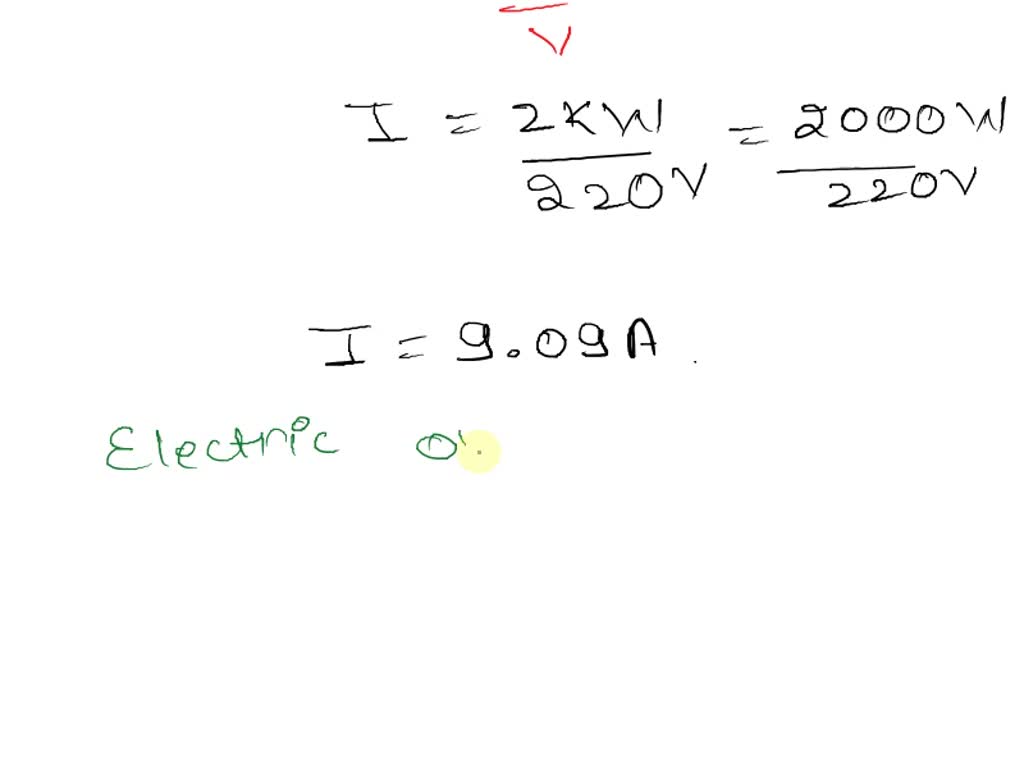 V
I = 2KW / 220V = 2000W / 220V
I = 9.09A.
Electric